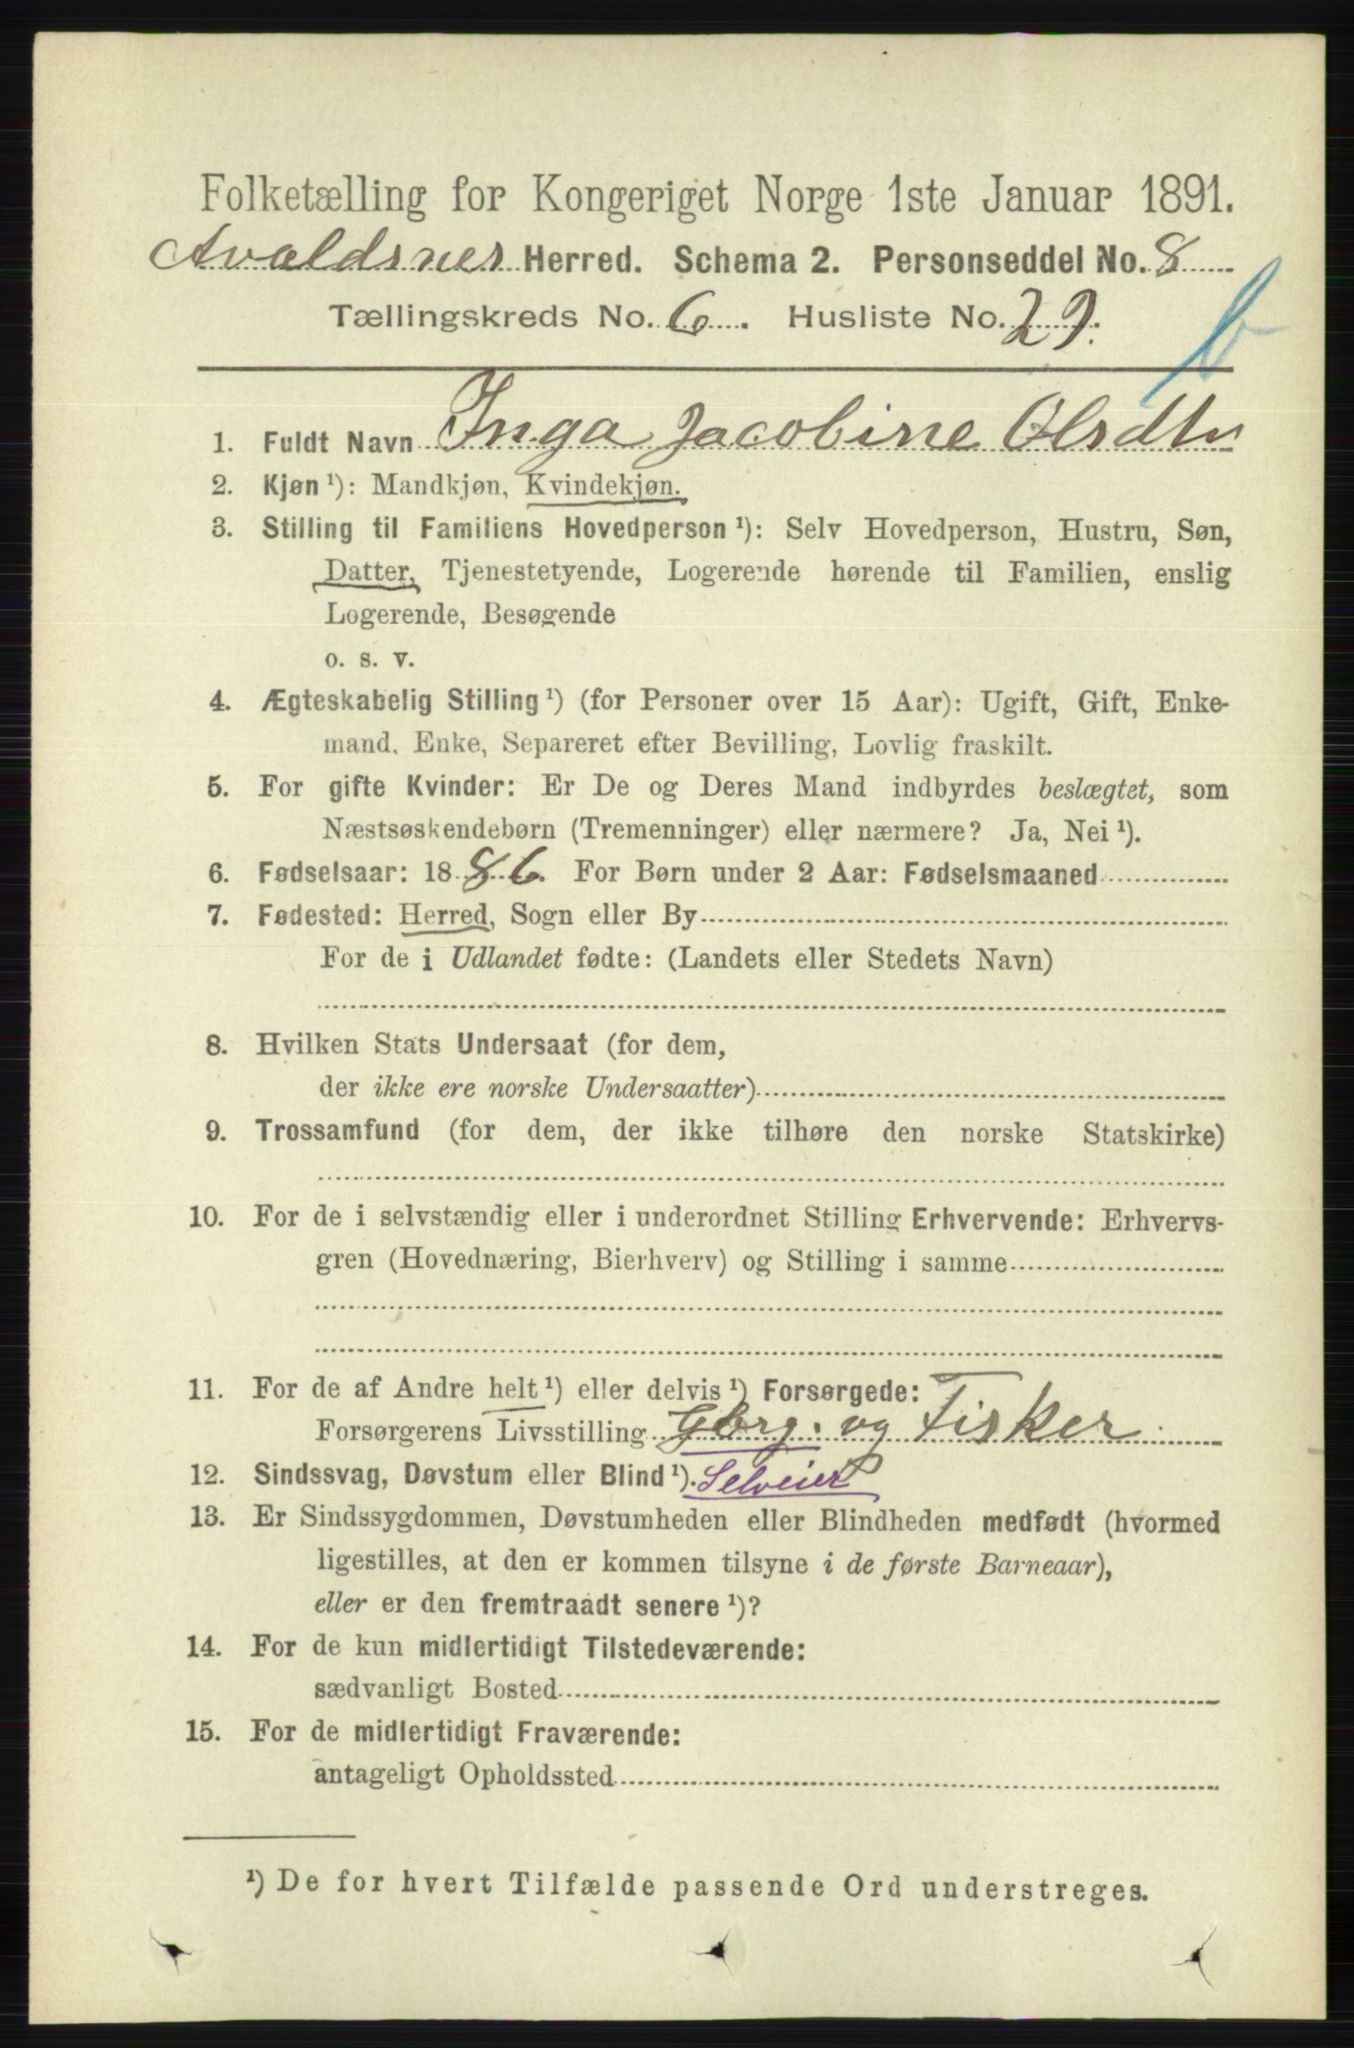 Folketælling for Kongeriget Norge 1ste Januar 1891.
Avaldsnes Herred. Schema 2. Personseddel No. 8
Tællingskreds No. 6. Husliste No. 29.
b
1. Fuldt Navn Inga Jacobine Olsdtr
2. Kjøn ¹): Mandkjøn, Kvindekjøn.
3. Stilling til Familiens Hovedperson ¹): Selv Hovedperson, Hustru, Søn,
Datter, Tjenestetyende, Logerende hørende til Familien, enslig
Logerende, Besøgende
o. s. v.
4. Ægteskabelig Stilling ¹) (for Personer over 15 Aar): Ugift, Gift, Enke-
mand, Enke, Separeret efter Bevilling, Lovlig fraskilt.
5. For gifte Kvinder: Er De og Deres Mand indbyrdes beslægtet, som
Næstsøskendebørn (Tremenninger) eller nærmere? Ja, Nei ¹).
6. Fødselsaar: 1886. For Børn under 2 Aar: Fødselsmaaned
7. Fødested: Herred, Sogn eller By
For de i Udlandet fødte: (Landets eller Stedets Navn)
8. Hvilken Stats Undersaat (for dem,
der ikke ere norske Undersaatter)
9. Trossamfund (for dem, der ikke tilhøre den norske Statskirke)
10. For de i selvstændig eller i underordnet Stilling Erhvervende: Erhvervs-
gren (Hovednæring, Bierhverv) og Stilling i samme
11. For de af Andre helt ¹) eller delvis ¹) Forsørgede:
Forsørgerens Livsstilling Gbrg. og Fisker
12. Sindssvag, Døvstum eller Blind ¹). Selveier
13. Er Sindssygdommen, Døvstumheden eller Blindheden medfødt (hvormed
ligestilles, at den er kommen tilsyne i de første Barneaar),
eller er den fremtraadt senere ¹)?
14. For de kun midlertidigt Tilstedeværende:
sædvanligt Bosted
15. For de midlertidigt Fraværende:
antageligt Opholdssted
¹) De for hvert Tilfælde passende Ord understreges.